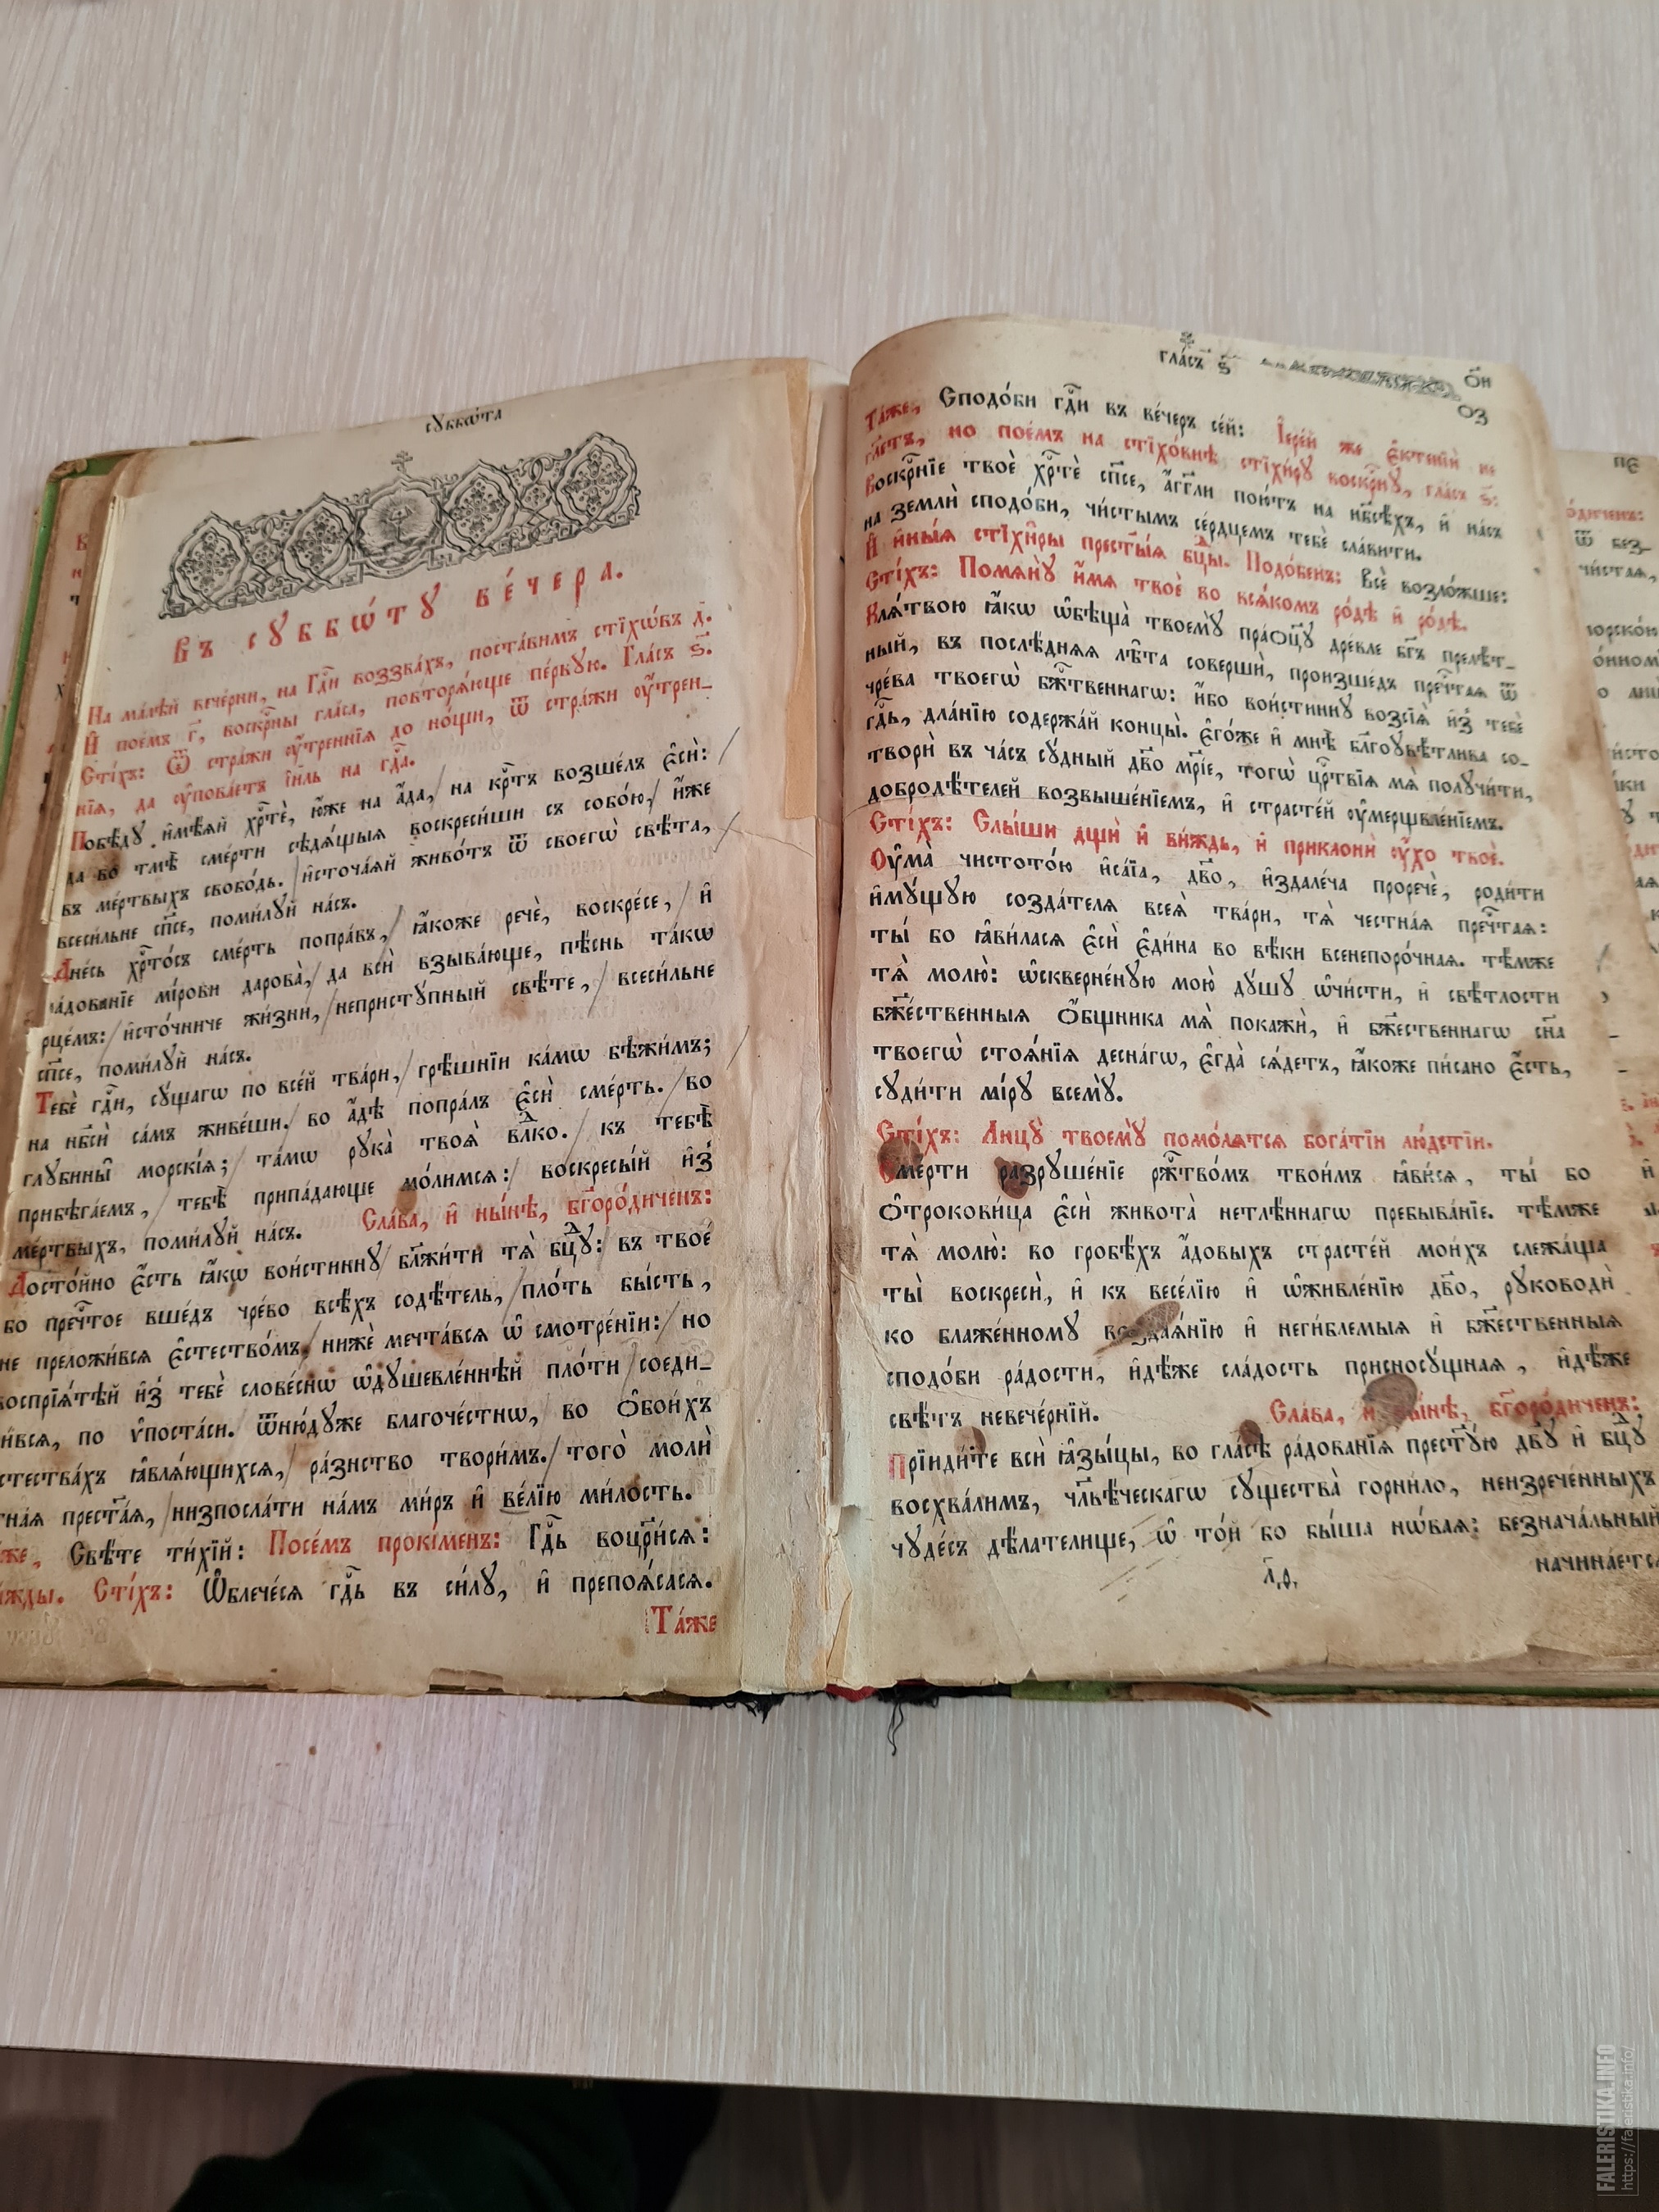 сꙋббѡ́та
Въ сꙋббѡ́тꙋ ве́чера.
На ма́лѣй вече́рни, на Гдⷭ҇и воззва́хъ, поста́вимъ стїхѡ́въ д҃.
И҆ пое́мъ г҃, воскрⷭ҇ны гла́са, повторѧ́юще пе́рвꙋю. Гла́съ ѕ҃.
Сті́хъ: Ѿ стра́жи ᲂу҆́треннїѧ до но́щи, ѿ стра́жи ᲂу҆́трен-
нїѧ, да ᲂу҆пова́етъ і҆и҃ль на гдⷭ҇а.
Побѣ́дꙋ и҆мѣ́ѧй хрⷭ҇тѐ, ю҆́же на а҆́да, / на крⷭ҇тъ возше́лъ є҆сѝ: /
да во тмѣ̀ сме́рти сѣдѧ́щыѧ воскреси́ши съ собо́ю, / и҆́же
въ ме́ртвыхъ свобо́дь. / и҆сточа́ѧй живо́тъ ѿ своегѡ̀ свѣ́та, /
всеси́льне сп҃се, поми́лꙋй на́съ.
Дне́сь хрⷭ҇то́съ сме́рть попра́въ, / ꙗ҆́коже речѐ, воскре́се, / и҆
ра́дованїе мі́рови дарова̀, / да всѝ взыва́юще, пѣ́снь та́кѡ
рце́мъ: / и҆сто́чниче жи́зни, / непристꙋ́пный свѣ́те, / всеси́льне
сп҃се, поми́лꙋй на́съ.
Тебѐ гдⷭ҇и, сꙋ́щаго по все́й тва́ри, / грѣ́шнїи ка́мѡ бѣжи́мъ; /
на нб҃сѝ са́мъ живе́ши. / во а҆́дѣ попра́лъ є҆сѝ сме́рть. / во
глꙋбины̑ морскі́ѧ; / та́мѡ рꙋка̀ твоѧ̀ влⷣко. / къ тебѣ̀
прибѣга́емъ, / тебѣ̀ припа́дающе мо́лимсѧ: / воскресы́й и҆з̾
ме́ртвыхъ, поми́лꙋй на́съ. Сла́ва, и҆ ны́нѣ, бг҃оро́диченъ:
Досто́йно є҆́сть ꙗ҆́кѡ вои́стиннꙋ / бл҃жи́ти тѧ̀ бцⷣꙋ: / въ твое́
бо пречⷭ҇тое вше́дъ чре́во всѣ́хъ содѣ́тель, / пло́ть бы́сть,
не преложи́всѧ є҆стество́мъ, / нижѐ мечта́всѧ ѡ҆ смотре́нїи: / но
воспрїѧ́тѣй и҆з̾ тебѐ слове́снѡ ѡ҆дꙋшевле́ннѣй пло́ти / соеди-
ни́всѧ, по ѵ҆поста́си. ѿню́дꙋже благоче́стнѡ, / во ѻ҆бои́хъ
є҆стества́хъ ꙗ҆влѧ́ющихсѧ, / ра́знство твори́мъ. / того̀ молѝ
честна́ѧ прест҃а́ѧ, / низпосла́ти на́мъ ми́ръ и҆ ве́лїю ми́лость.
Та́же, Свѣ́те ти́хїй: Посе́мъ прокі́менъ: Гдⷭ҇ь воцр҃и́сѧ:
два́жды. Сті́хъ: Ѡ҆блече́сѧ гдⷭ҇ь въ си́лꙋ, и҆ препоѧ́сасѧ.
Та́же
гла́съ ѕ҃ ѻ҃и
ѻз
Та́же, Сподо́би гдⷭ҇и въ ве́черъ се́й: І҆ере́й же є҆ктенїи̑ не
гл҃етъ, но пое́мъ на стїхо́внѣ стїхи́рꙋ воскрⷭ҇нꙋ, гла́съ ѕ҃:
Воскрⷭ҇нїе твоѐ хрⷭ҇тѐ сп҃се, а҆́гг҃ли пою́тъ на нб҃сѣ́хъ, и҆ на́съ
на землѝ сподо́би, чи́стымъ се́рдцемъ тебѐ сла́вити.
И҆ и҆ны́ѧ стїхи̑ры прест҃ы́ѧ бцⷣы. Подо́бенъ: Всѐ возло́жше:
Сті́хъ: Помѧнꙋ̀ и҆́мѧ твоѐ во всѧ́комъ ро́дѣ и҆ ро́дѣ.
Клѧ́твою ꙗ҆́кѡ ѡ҆бѣща̀ твоемꙋ̀ пра́ѻц҃ꙋ дре́вле бг҃ъ прелѣ́т-
ный, въ послѣ́днѧѧ лѣ̑та совершѝ, произше́дъ пречⷭ҇таѧ ѿ
чре́ва твоегѡ̀ бжⷭ҇твеннагѡ: и҆́бо вои́стиннꙋ возсїѧ̀ и҆з̾ тебє̀
гдⷭ҇ь, дла́нїю содержа́й концы̀. є҆го́же и҆ мнѣ̀ благоꙋвѣ́тлива со-
творѝ въ ча́съ сꙋ́дный дв҃о мр҃і́е, тогѡ̀ црⷭ҇твїѧ мѧ̀ полꙋчи́ти,
добродѣ́телей возвыше́нїемъ, и҆ страсте́й ᲂу҆мерщвле́нїемъ.
Сті́хъ: Слы́ши дщѝ и҆ ви́ждь, и҆ приклонѝ ᲂу҆́хо твоѐ.
Оу҆ма̀ чистото́ю и҆са́їа, дв҃о, и҆здале́ча проречѐ, роди́ти
и҆мꙋ́щꙋю созда́телѧ всеѧ̀ тва́ри, тѧ̀ честна́ѧ пречⷭ҇таѧ:
ты́ бо ꙗ҆ви́ласѧ є҆сѝ є҆ди́на во вѣ́ки всенепоро́чнаѧ. тѣ́мже
тѧ̀ молю̀: ѡ҆скверне́нꙋю мою̀ дꙋ́шꙋ ѡ҆чи́сти, и҆ свѣ́тлости
бж҃е́ственныѧ ѻ҆́бщника мѧ̀ покажѝ, и҆ бж҃е́ственнагѡ сн҃а
твоегѡ̀ стоѧ́нїѧ десна́гѡ, є҆гда̀ сѧ́детъ, ꙗ҆́коже пи́сано є҆́сть,
сꙋди́ти мі́рꙋ всемꙋ̀.
Сті́хъ: Лицꙋ̀ твоемꙋ̀ помо́лѧтсѧ бога́тїи лю́дстїи.
Сме́рти разрꙋше́нїе ржⷭ҇тво́мъ твои́мъ ꙗ҆ви́сѧ, ты́ бо
ѻ҆трокови́ца є҆сѝ живота̀ нетлѣ́ннагѡ пребыва́нїе. тѣ́мже
тѧ̀ молю̀: во гробѣ́хъ а҆́довыхъ страсте́й мои́хъ слежа́ща
ты̀ воскресѝ, и҆ къ весе́лїю и҆ ѡ҆живле́нїю дв҃о, рꙋководѝ
ко блаже́нномꙋ воздаѧ́нїю и҆ неги́блемыѧ и҆ бж҃е́ственныѧ
сподо́би ра́дости, и҆дѣ́же сла́дость присносꙋ́щнаѧ, и҆дѣ́же
свѣ́тъ невече́рнїй. Сла́ва, и҆ ны́нѣ, бг҃оро́диченъ:
Прїиди́те всѝ ꙗ҆зы́цы, во гла́сѣ ра́дованїѧ прест҃ꙋ́ю дв҃ꙋ и҆ бцⷣꙋ
восхва́лимъ, чл҃вѣ́ческагѡ сꙋщества̀ горни́ло, неизрече́нныхъ
чꙋде́съ дѣ́лателище, ѡ҆ то́й бо бы́ша нѡ́ваѧ: безнача́льный
л҃.ѳ. начина́етсѧ
FALERISTIKA.INFO
https://faleristika.info/